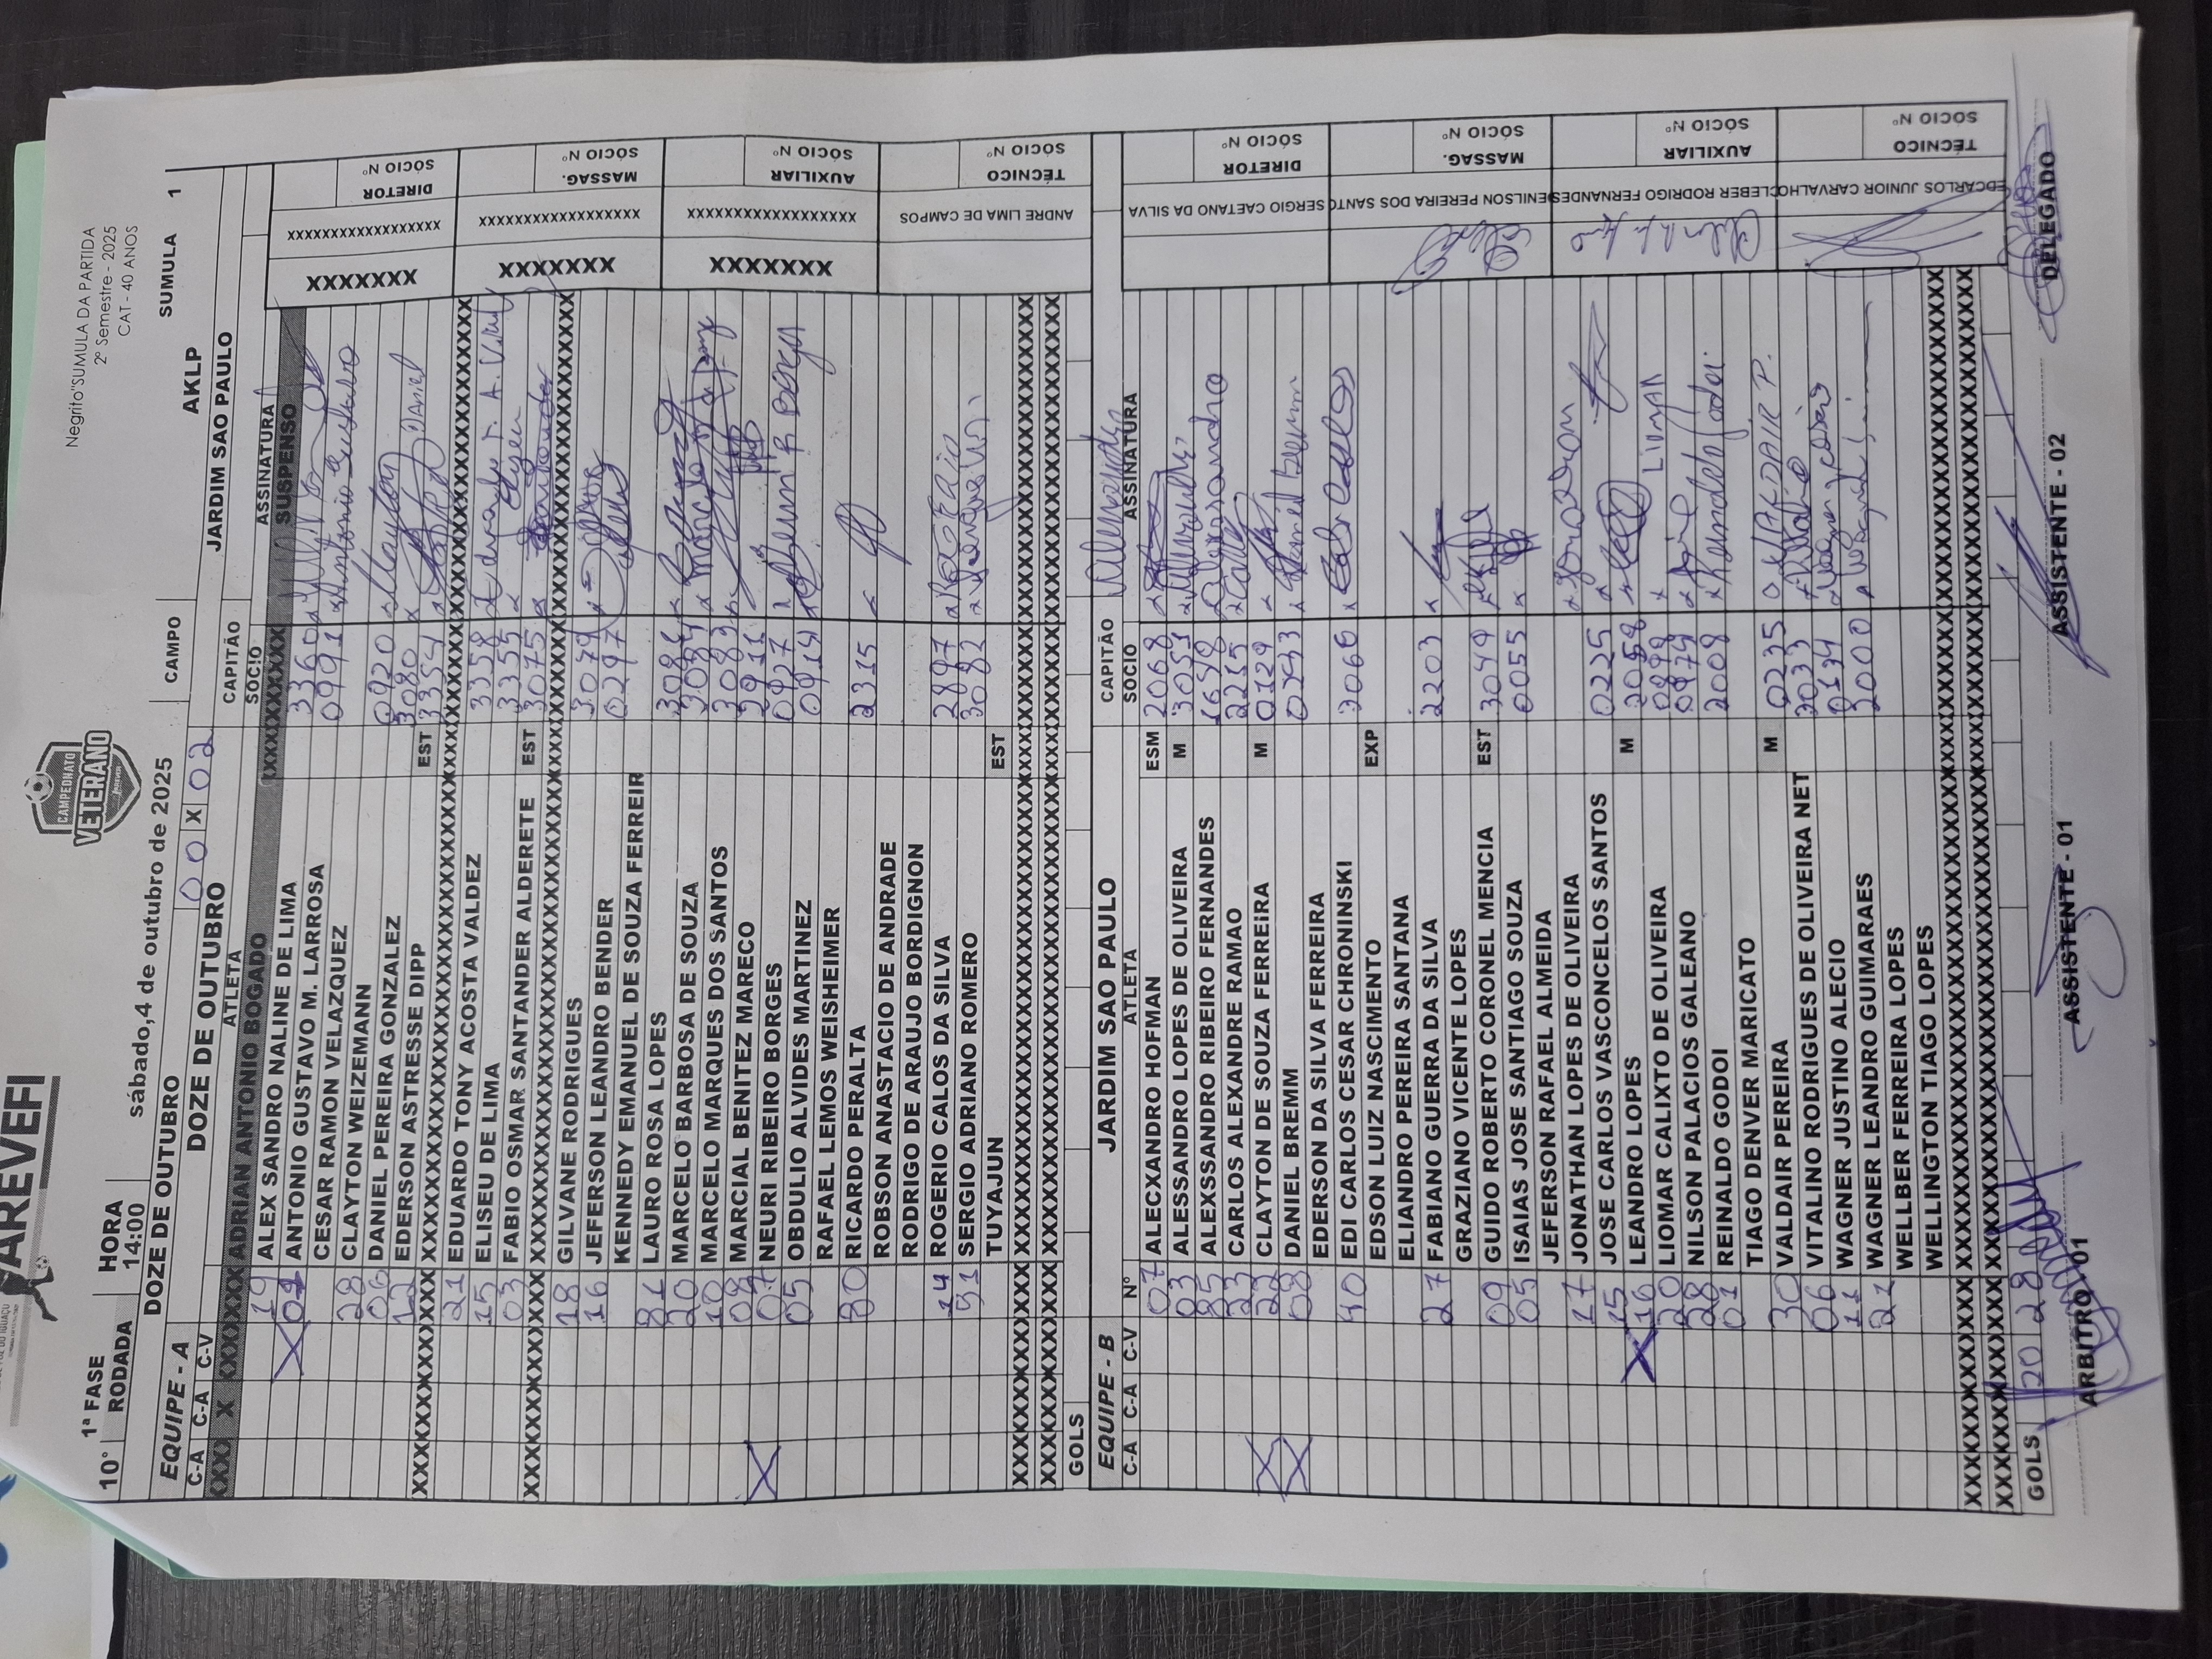 AREVEFI
CAMPEONATO
VETERANO
Negrito"SUMULA DA PARTIDA
2º Semestre - 2025
CAT - 40 ANOS
10° 1ª FASE HORA sábado,4 de outubro de 2025 CAMPO SUMULA 1
RODADA 14:00 AKLP
DOZE DE OUTUBRO 00 X 02 JARDIM SAO PAULO
EQUIPE - A DOZE DE OUTUBRO CAPITÃO
C-A C-A C-V ATLETA SOCIO ASSINATURA
XXX X XXXXXX ADRIAN ANTONIO BOGADO XXXXXXXXXXXX SUSPENSO
19 ALEX SANDRO NALINE DE LIMA 3360
X 01 ANTONIO GUSTAVO M. LARROSA 0991 Antonio Gustavo
CESAR RAMON VELAZQUEZ
28 CLAYTON WEIZEMANN 0920 Clayton
06 DANIEL PEREIRA GONZALEZ 3080 Daniel
12 EDERSON ASTRESSE DIPP EST 3354
21 EDUARDO TONY ACOSTA VALDEZ 3358
15 ELISEU DE LIMA 3355
03 FABIO OSMAR SANTANDER ALDERETE EST 3075
18 GILVANE RODRIGUES 3079
16 JEFERSON LEANDRO BENDER 0297
KENNEDY EMANUEL DE SOUZA FERREIR
81 LAURO ROSA LOPES 3086
20 MARCELO BARBOSA DE SOUZA 3084
10 MARCELO MARQUES DOS SANTOS 3083
08 MARCIAL BENITEZ MARECO 2911
X 07 NEURI RIBEIRO BORGES 0927
05 OBDULIO ALVIDES MARTINEZ 0914
RAFAEL LEMOS WEISHEIMER
80 RICARDO PERALTA 2315
ROBSON ANASTACIO DE ANDRADE
RODRIGO DE ARAUJO BORDIGNON
14 ROGERIO CALOS DA SILVA 2897
91 SERGIO ADRIANO ROMERO 3082
TUYAJUN EST
GOLS
XXXXXXX XXXXXXXXXXXXXXXXXXX DIRETOR SÓCIO Nº
XXXXXXX XXXXXXXXXXXXXXXXXXX MASSAG. SÓCIO Nº
XXXXXXX XXXXXXXXXXXXXXXXXXX AUXILIAR SÓCIO Nº
ANDRE LIMA DE CAMPOS TÉCNICO SÓCIO Nº
EQUIPE - B JARDIM SAO PAULO CAPITÃO
C-A C-A C-V Nº ATLETA SOCIO ASSINATURA
07 ALECXANDRO HOFMAN ESM 2068
03 ALESSANDRO LOPES DE OLIVEIRA M 3051
85 ALEXSSANDRO RIBEIRO FERNANDES 1658
23 CARLOS ALEXANDRE RAMAO 2215
X 22 CLAYTON DE SOUZA FERREIRA M 0129
X 08 DANIEL BREMM 0293 Daniel Bremm
EDERSON DA SILVA FERREIRA
40 EDI CARLOS CESAR CHRONINSKI 3066
EDSON LUIZ NASCIMENTO EXP
ELIANDRO PEREIRA SANTANA
27 FABIANO GUERRA DA SILVA 2203
GRAZIANO VICENTE LOPES
09 GUIDO ROBERTO CORONEL MENCIA EST 3049
05 ISAIAS JOSE SANTIAGO SOUZA 0055
JEFERSON RAFAEL ALMEIDA
17 JONATHAN LOPES DE OLIVEIRA 0225
15 JOSE CARLOS VASCONCELOS SANTOS 2058
X 16 LEANDRO LOPES M 0898
20 LIOMAR CALIXTO DE OLIVEIRA LIOMAR
28 NILSON PALACIOS GALEANO 0974
01 REINALDO GODOI 2009 Reinaldo Godoi
TIAGO DENVER MARICATO
30 VALDAIR PEREIRA M 0235 VALDAIR P.
06 VITALINO RODRIGUES DE OLIVEIRA NET 2033
11 WAGNER JUSTINO ALECIO 0134
21 WAGNER LEANDRO GUIMARAES 2000
WELLBER FERREIRA LOPES
WELLINGTON TIAGO LOPES
GOLS 20 28
SERGIO CAETANO DA SILVA DIRETOR SÓCIO Nº
DENILSON PEREIRA DOS SANTO MASSAG. SÓCIO Nº
CLEBER RODRIGO FERNANDES AUXILIAR SÓCIO Nº
EDCARLOS JUNIOR CARVALHO TÉCNICO SÓCIO Nº
ARBITRO 01 ASSISTENTE - 01 ASSISTENTE - 02 DELEGADO